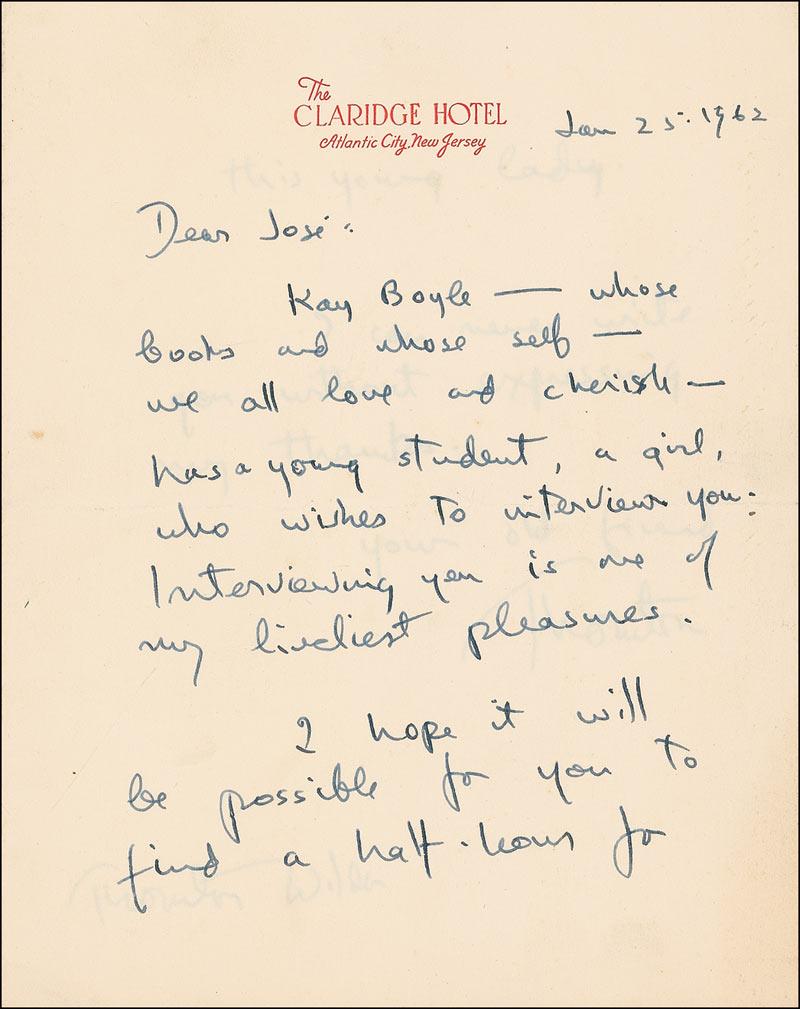 The
CLARIDGE HOTEL
Atlantic City, New Jersey
Jan 25. 1962
this young lady.
Dear José:
Kay Boyle — whose
books and whose self —
we all love and cherish —
has a young student, a girl,
who wishes to interview you:
Interviewing you is one of
my liveliest pleasures.
I hope it will
be possible for you to
find a half-hour for
Thornton Wilder